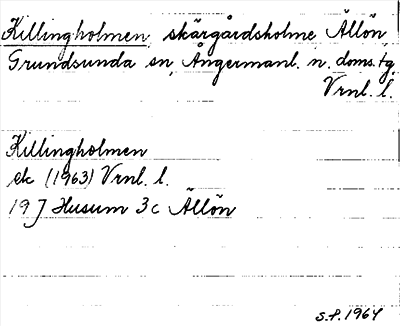 Killingholmen, skärgårdsholme Ällön
Grundsunda sn, Ångermanl. n. doms. tg
Vrnl. l.
Killingholmen
ek (1963) Vrnl. l.
19 J Husum 3 c Ällön
S.F. 1964